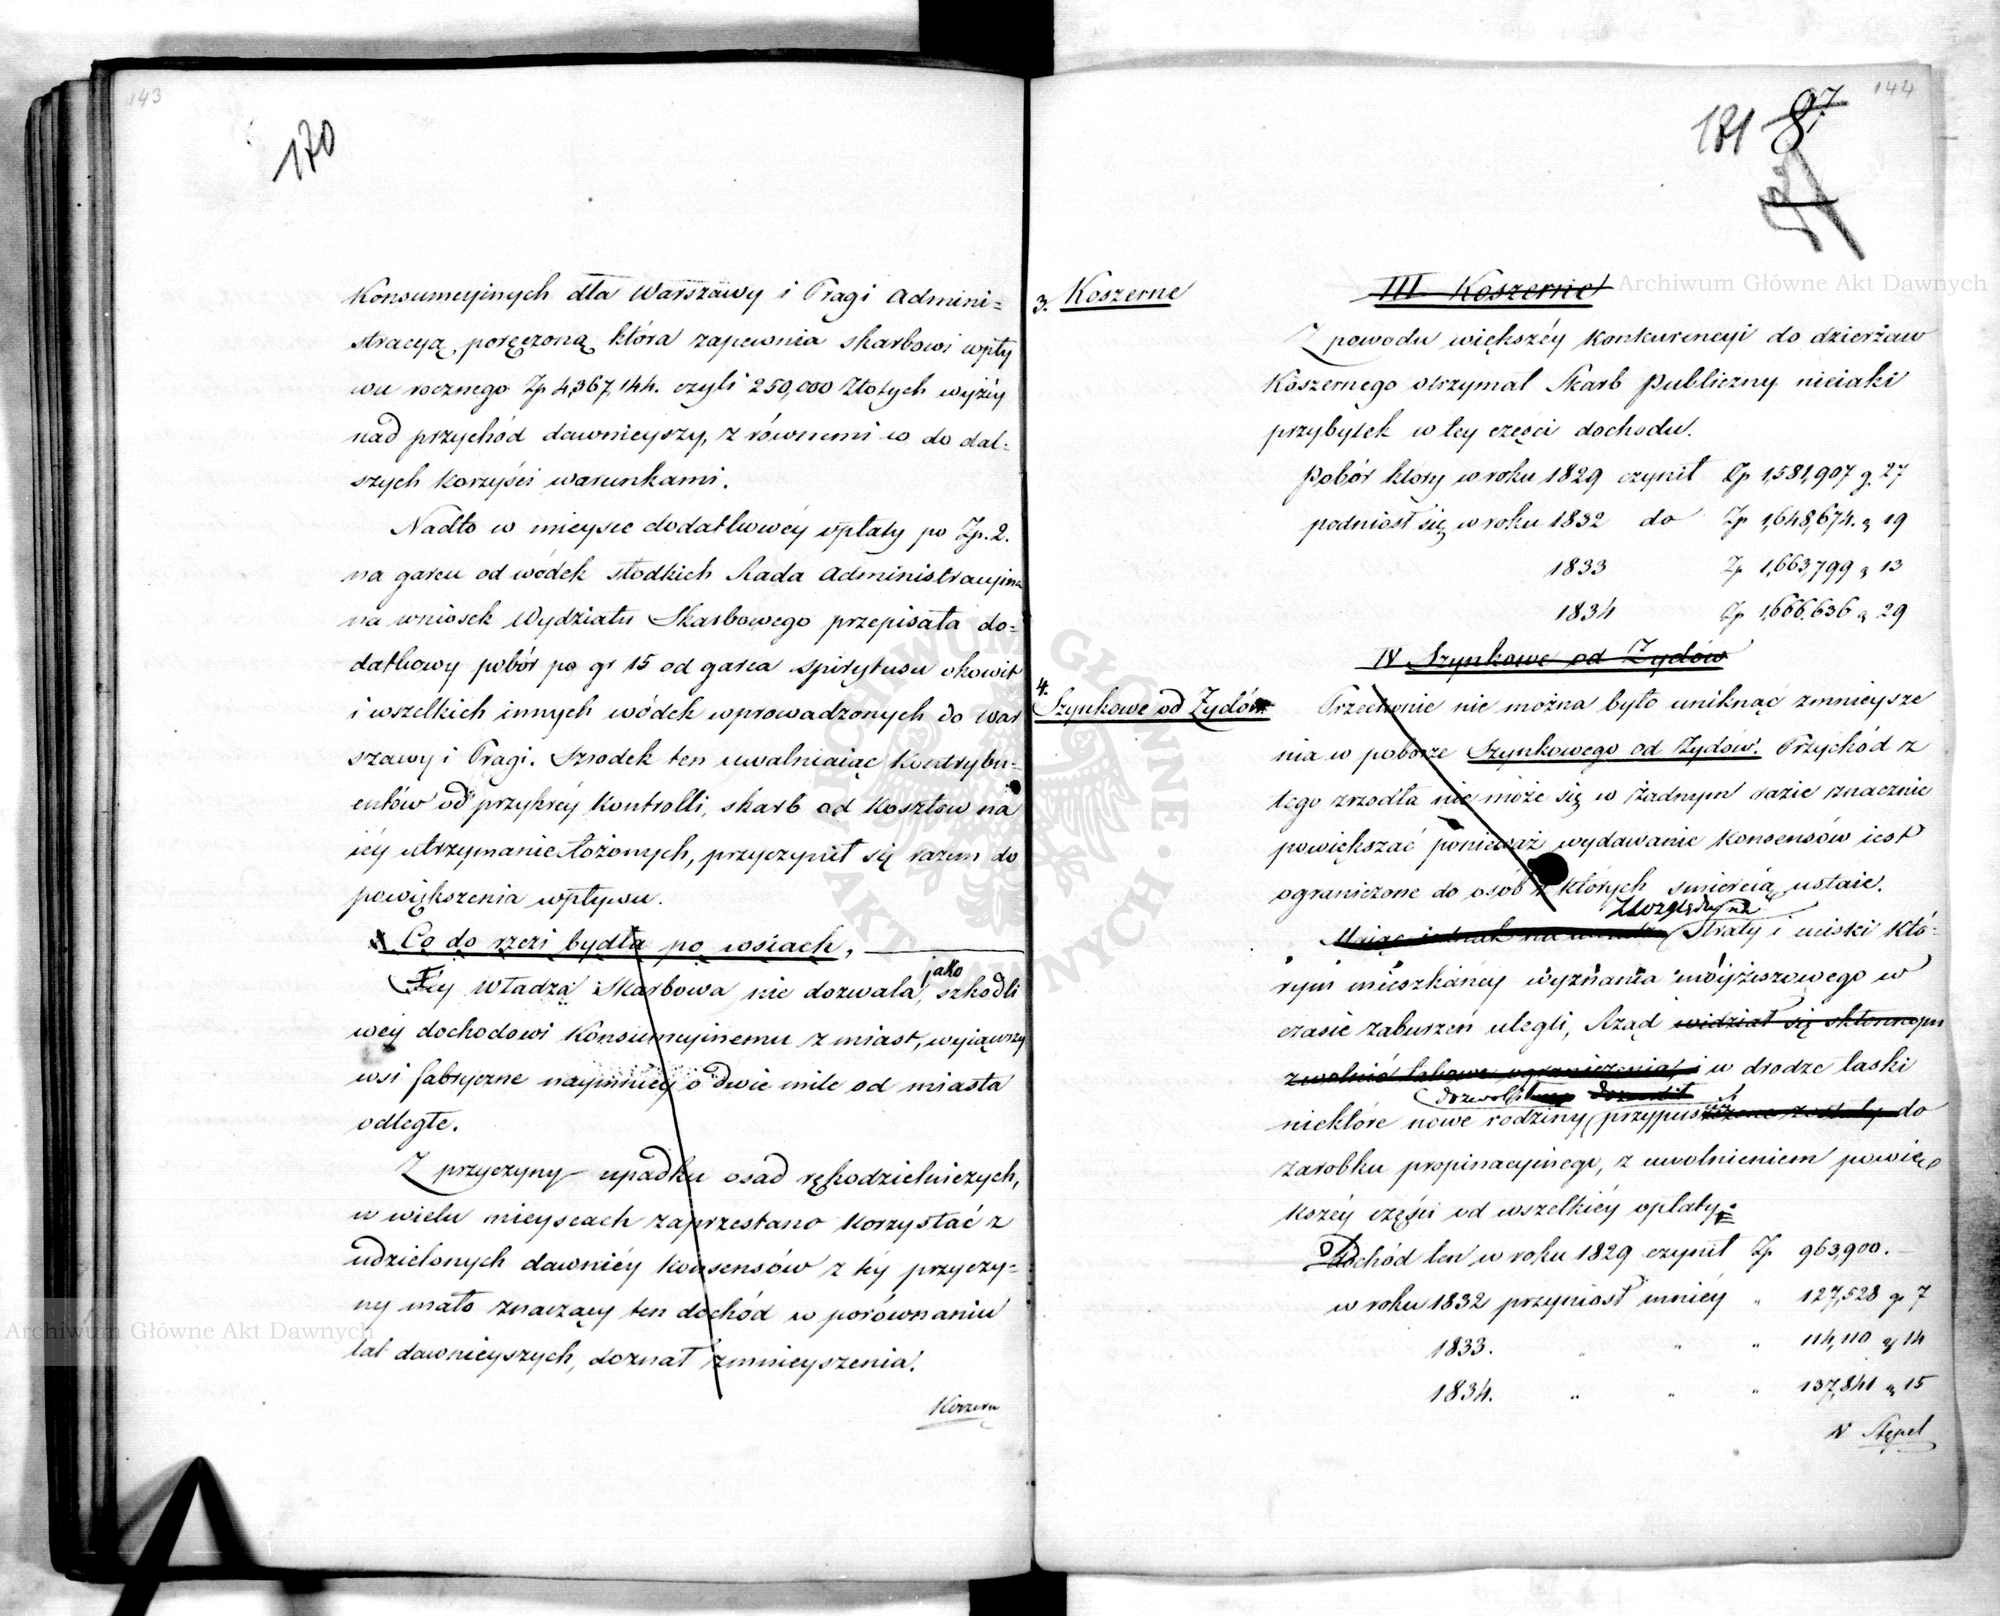 143
170
Konsumcyinych dla Warszawy i Pragi Admini=
stracyą poręczoną która zapewnia skarbowi wpły
wu rocznego Zp 4,367,144. czyli 250,000 Złotych wyżéy
nad przychód dawnieyszy, z równemi co do dal-
szych korzyści warunkami.
Nadto w mieysce dodatkowéy opłaty po Zp. 2.
na garcu od wódek słodkich Rada Administracyina
na wniosek Wydziału Skarbowego przepisała do=
datkowy pobór po gr 15 od garca spirytusu okowit
i wszelkich innych wódek wprowadzonych do War
szawy i Pragi. Szrodek ten uwalniaiąc kontrybu-
entów od przykréy kontrolli, skarb od kosztow na
iéy utrzymanie łożonych, przyczynił się razem do
powiększenia wpływu.
Co do rzezi bydła po wsiach,
jako
Téy Władza Skarbowa nie dozwala, szkodli
wéy dochodowi Konsumcyinemu z miast, wyiąwszy
wsi fabryczne naymniéy o dwie mile od miasta
odległe.
Z przyczyny upadku osad rękodzielniczych,
w wielu mieyscach zaprzestano korzystać z
udzielonych dawniéy konsensów z téy przyczy=
ny mało znaczący ten dochód w porównaniu
lat dawnieyszych, doznał zmnieyszenia.
144
171 87
3. Koszerne
III Koszerne
Z powodu większéy konkurencyi do dzierżaw
Koszernego otrzymał Skarb publiczny nieiaki
przybytek w tey części dochodu.
Pobór który w roku 1829 czynił Zp 1,581,907 g. 27
podniosł się w roku 1832 do Zp 1,648,674. g 19
1833 Zp 1,663,799 g 13
1834 Zp 1,666,636 g 29
IV Szynkowe od Żydów
4.
Szynkowe od Żydów
Przeciwnie nie można było uniknąć zmnieysze
nia w poborze Szynkowego od Żydów. Przychód z
tego zrzodła nie może się w żadnym razie znacznie
powiększać ponieważ wydawanie konsensów iest
ograniczone do osób z których śmiercią ustaie.
Zewzględu na
Maiąc jednak na straty i uciski któ-
rym mieszkańcy wyznania moyżeszowego w
czasie zaburzeń ulegli, Rząd widział się skłonnym
zwolnić takowe ograniczenia i w drodze łaski
dozwolił
niektóre nowe rodziny przypuszczone zostały do
zarobku propinacyinego, z uwolnieniem powię
kszéy części od wszelkiéy opłaty.
Dochód ten w roku 1829 czynił Zp 963,900.
w roku 1832 przyniosł mniéy " 127,528 g 7
1833. " " " 114,110 g 14
1834. " " " 137,841 g 15
V Stępel
Archiwum Główne Akt Dawnych
Archiwum Główne Akt Dawnych
ARCHIWUM GŁÓWNE AKT DAWNYCH